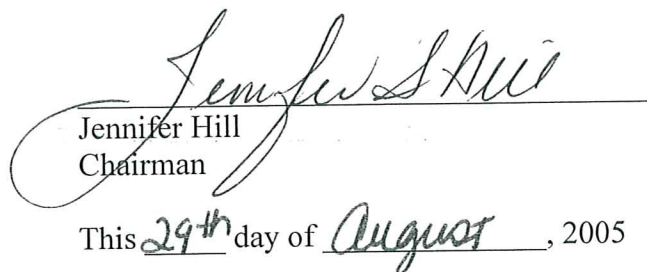 Jennifer S Hill
Jennifer Hill
Chairman
This 29th day of August, 2005